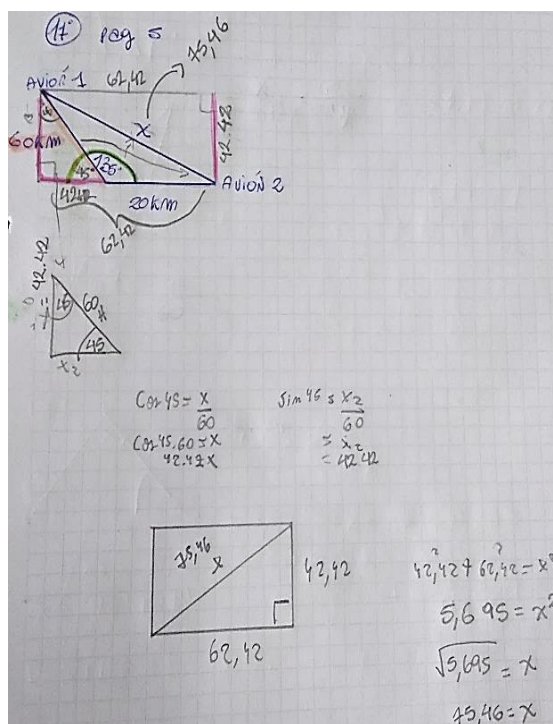 17° pag 5
75,46
Avión 1
62,42
60km
X
42.42
45°
135°
Avión 2
20km
62,42
42.42
60
45
x2
Cos 45 = x/60
Cos 45.60 = x
42.42 x
Sin 45 = x2/60
= x2
= 42.42
75,46
x
42,42
62,42
42,42² + 62,42² = x²
5,695 = x²
√5,695 = x
75,46 = x